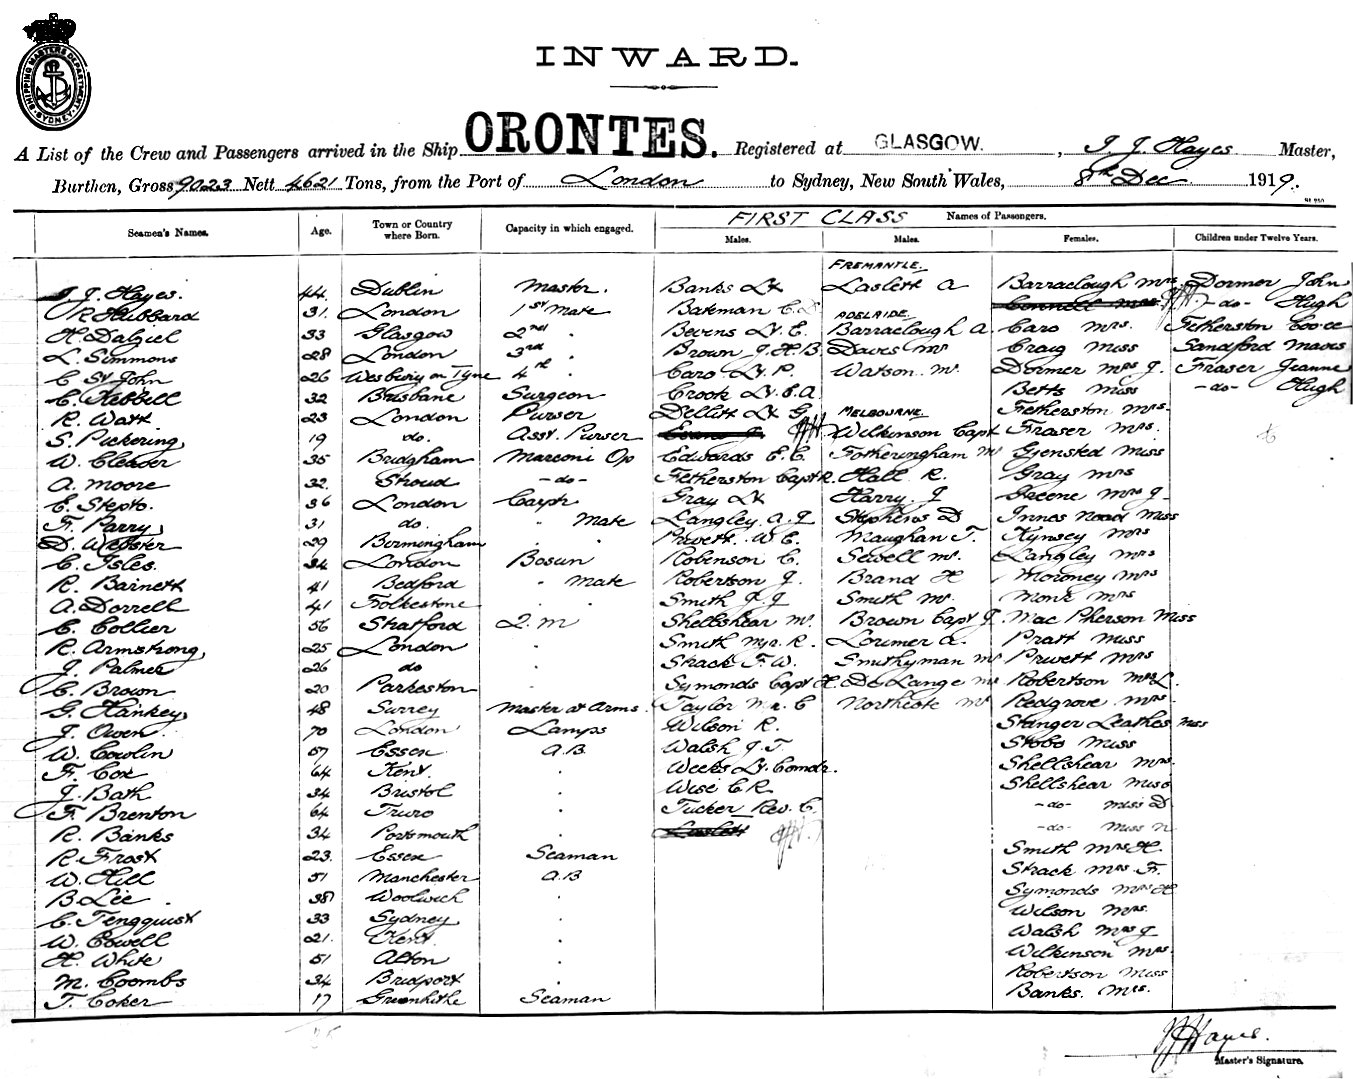 SHIPPING MASTERS DEPARTMENT. SYDNEY
INWARD.
A List of the Crew and Passengers arrived in the Ship ORONTES. Registered at GLASGOW. , J. J. Hayes Master,
Burthen, Gross 9023 Nett 4621 Tons, from the Port of London to Sydney, New South Wales, 8th Dec 1919.
Seamen's Names. Age. Town or Country where Born. Capacity in which engaged. FIRST CLASS Names of Passengers.
Males. Males. Females. Children under Twelve Years.
FREMANTLE.
J. J. Hayes. 44 Dublin Master. Banks Lt Laslett A Barraclough Mrs Dormer John
R Hubbard 31. London 1st Mate Bateman C. Connell Mrs -do- Hugh
ADELAIDE.
H. Dalziel 33 Glasgow 2nd . Bevens Lt. E. Barraclough A. Caro Mrs. Fetherston Cooee
L. Simmons 28 London 3rd . Brown J. H. B. Daves Mr Craig Miss Sandford Mavis
C St John 26 Wesbury on Tyne 4th . Caro Lt. R. Watson Mr. Dormer Mrs J. Fraser Jeanne
C. Kebbell 32 Brisbane Surgeon Crook Lt. E. A. Betts Miss -do- Hugh
R. Watt. 23 London Purser Dellitt Lt G. MELBOURNE. Fetherston Mrs.
S. Puckering, 19 do. Asst. Purser Evans J. Wilkinson Capt Fraser Mrs.
W. Cleaver 35 Bridgham Marconi Op Edwards E. C. Fotheringham Mr Gjensted Miss
A. Moore 32. Stroud -do- Fetherston Capt R. Hall R. Gray Mrs
E. Stepto. 36 London Carptr Gray Lt Harry. J Greene Mrs J.
F. Parry, 31 do. " Mate Langley. A. J Stephens D Innes Noad Miss
D. Webster 29 Birmingham . . Privett. W. E. Maughan T. Kynsey Mrs
C. Isles. 34 London Bosun Robinson C. Sewell Mr. Langley Mrs
R. Barnett 41 Bedford " Mate Robertson J. Brand H Moroney Mrs
A. Dorrell 41 Folkestone . . Smith J. J Smith Mr. Monk Mrs
C. Collier 56 Stratford Q. M Shellshear Mr. Brown Capt J. Mac Pherson Miss
R. Armstrong, 25 London . Smith Myr. R. Lorimer A. Pratt Miss
J. Palmer 26 do . Strack F. W. Smithyman Mr Privett Mrs
C. Brown 20 Parkeston . Symonds Capt H. De Lange Mr Robertson Mrs L.
G. Hankey, 48 Surrey Master at Arms Taylor Mr. C Northcote Mr Redgrove Mrs.
J. Owen. 70 London Lamps Wilson R. Stanger Leathes Miss
W. Cowlin 57 Essex A.B Walsh J. T. Stobo Miss
F. Cox 64 Kent. . Weeks Lt. Comdr. Shellshear Mrs.
J. Bath 34 Bristol . Wise C R. Shellshear Miss
F. Brenton 64 Truro . Tucker Rev. C. -do- Miss D
R. Banks 34 Portsmouth . Laslett -do- Miss N
R. Frost 23. Essex Seaman Smith Mrs H.
W. Hill 51 Manchester A.B Strack Mrs F.
B. Lee . 38 Woolwich . Symonds Mrs H
C. Tengquist 33 Sydney . Wilson Mrs.
W. Cowell 21. Kent . Walsh Mrs J
H. White 51 Alton . Wilkinson Mrs.
M. Coombs 34 Bridport . Robertson Miss
T. Coker 17 Greenhithe Seaman Banks. Mrs.
J J Hayes.
Master's Signature.